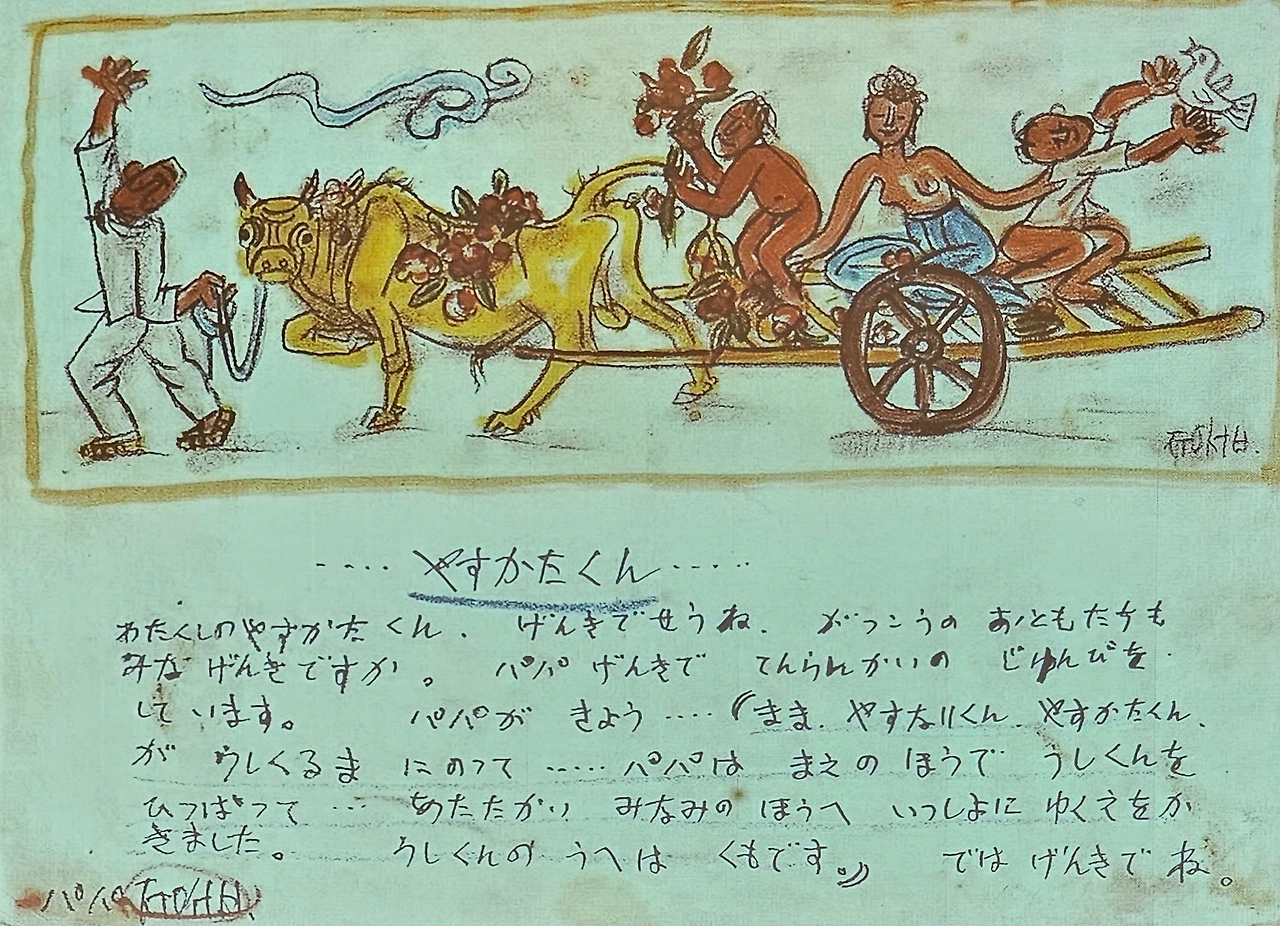 ㅈㅜㅇㅅㅓㅂ.
‥‥やすかたくん‥‥‥
わたくしのやすかたくん. げんきでせうね. がつこうのおともたちも
みなげんきですか。 パパげんきで てんらんかいの じゆんびを.
しています。 パパが きよう‥‥(まま. やすなりくん. やすかたくん.
が うしくるま にのつて ‥‥‥ パパは まえの ほうで うしくんを
ひつぱつて ‥‥ あたたかい みなみの ほうへ いつしよに ゆくえをか
きました。 うしくんの うへは くもです。) では げんきで ね。
パパ ㅈㅜㅇㅅㅓㅂ